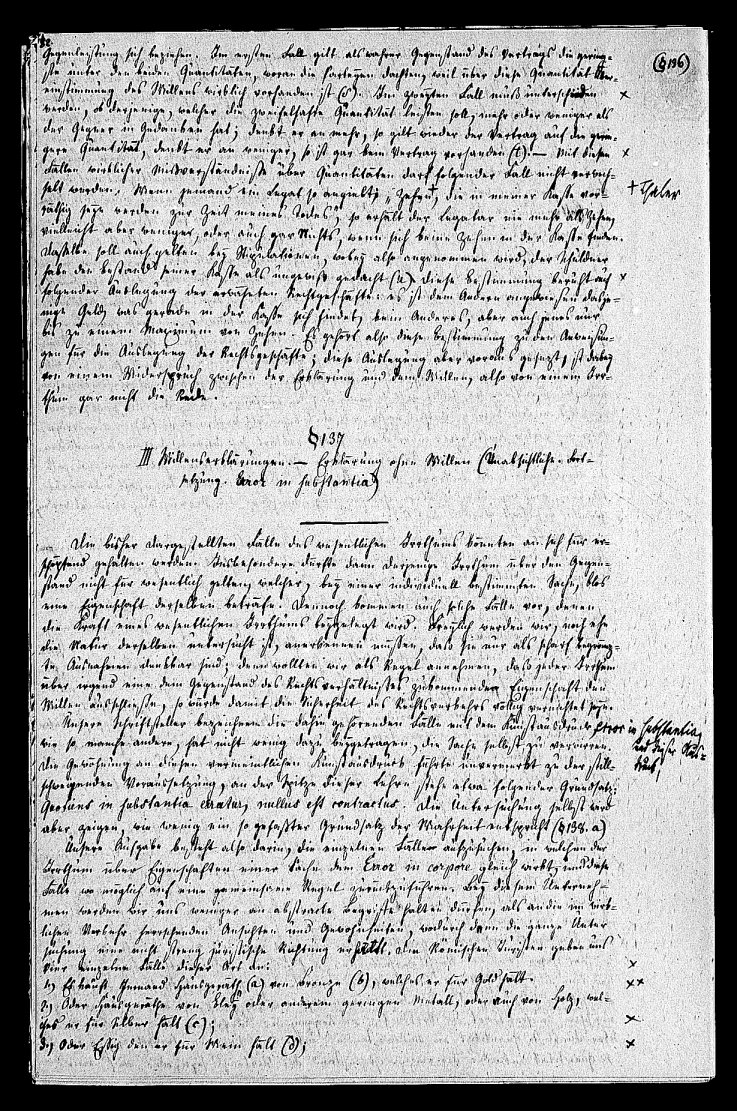 82.
Gegenleistung sich beziehen. Im ersten Fall gilt als wahrer Gegenstand des Vertrags die gering-
ste unter den beiden Quantitäten, woran die Parteyen dachten, weil über diese Quantität Über-
einstimmung des Willens wirklich vorhanden ist (s). Im zweyten Fall muß unterschieden
werden, ob derjenige, welcher die zweifelhafte Quantität leisten soll, mehr oder weniger als
der Gegner in Gedanken hat; denkt er an mehr, so gilt wieder der Vertrag auf die grin-
gere Quantität, denkt er an weniger, so ist gar kein Vertrag vorhanden (t). — Mit diesen
Fällen wirklicher Misverständnisse über Quantitäten darf folgender Fall nicht verwech-
selt werden. Wenn jemand ein Legat so angiebt: „Zehen, die in meiner Kasse vor-
räthig seyn werden zur Zeit meines Todes", so erhält der Legatar nie mehr als Zehen,
vielleicht aber weniger, oder auch gar Nichts, wenn sich keine Zehen in der Kasse finden.
Dasselbe soll auch gelten bey Stipulationen, wobey also angenommen wird, der Schuldner
habe den Bestand seiner Kasse als ungewiß gedacht (u). Diese Bestimmung beruht auf
folgender Auslegung der erwähnten Rechtsgeschäfte: es ist dem Andern angewiesen dasje-
nige Geld, was gerade in der Kasse sich findet, kein Anderes, aber auch jenes nur
bis zu einem Maximum von Zehen. Es gehört also diese Bestimmung zu den Anweisun-
gen für die Auslegung der Rechtsgeschäfte; diese Auslegung aber voraus gesezt, ist dabey
von einem Widerspruch zwischen der Erklärung und dem Willen, also von einem Irr-
thum gar nicht die Rede.
(§ 136)
+ Thaler
§ 137
III Willenserklärungen. — Erklärung ohne Willen (Unabsichtliche. Fort-
setzung. Error in substantia)
Die bisher dargestellten Fälle des wesentlichen Irrthums könnten an sich für er-
schöpfend gehalten werden. Insbesondere dürfte dann derjenige Irrthum über den Gegen-
stand nicht für wesentlich gelten, welcher, bey einer individuell bestimmten Sache, blos
eine Eigenschaft derselben beträfe. Dennoch kommen auch solche Fälle vor, denen
die Kraft eines wesentlichen Irrthums beygelegt wird. Freylich werden wir, noch ehe
die Natur derselben untersucht ist, anerkennen müssen, daß sie nur als scharf begränz-
te Ausnahmen denkbar sind; denn wollten wir als Regel annehmen, daß jeder Irrthum
über irgend eine dem Gegenstand des Rechtsverhältnisses zukommenden Eigenschaft den
Willen ausschließe, so würde damit die Sicherheit des Rechtsverkehrs völlig vernichtet seyn.
Unsere Schriftsteller bezeichnen die dahin gehörenden Fälle mit dem Kunstausdruck error in substantia,
und dieser Aus-
druck,
wie so manche andere, hat nicht wenig dazu beygetragen, die Sache selbst zu verwirren.
Die Gewöhnung an diesen vermeintlichen Kunstausdruck führte unvermerkt zu der still-
schweigenden Voraussetzung, an der Spitze dieser Lehre stehe etwa folgender Grundsatz:
Quotiens in substantia erratur, nullus est contractus. Die Untersuchung selbst wird
aber zeigen, wie wenig ein so gefaßter Grundsatz der Wahrheit entspricht (§ 138. a)
Unsere Aufgabe besteht also darin, die einzelnen Fälle aufzusuchen, in welchen der
Irrthum über Eigenschaften einer Sache dem Error in corpore gleich wirkt, und diese
Fälle wo möglich auf eine gemeinsame Regel zurückzuführen. Bey diesem Unterneh-
men werden wir uns weniger an abstracte Begriffe halten dürfen, als an die im wirk-
lichen Verkehr herrschenden Ansichten und Gewohnheiten, wodurch denn die ganze Unter
suchung eine nicht streng juristische Richtung erhält. Die Römischen Juristen geben uns
vier einzelne Fälle dieser Art an:
1.) Es kauft Jemand Hausgeräth (a) von Bronze (b), welches er für Gold hält.
2.) Oder Hausgeräthe von Bley oder anderem geringen Metall, oder auch von Holz, wel-
ches er für Silber hält (c);
3.) Oder Essig den er für Wein hält (d);